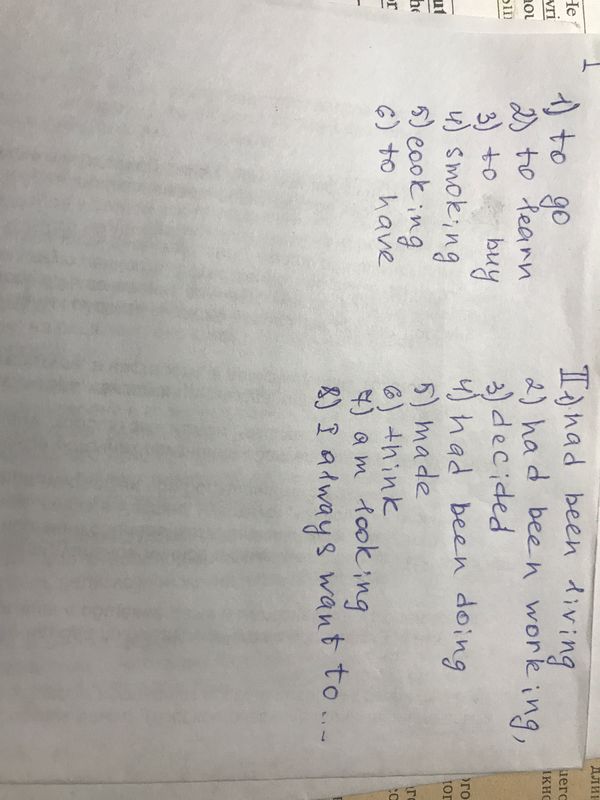 I
1) to go
2) to learn
3) to buy
4) smoking
5) cooking
6) to have
II 1) had been living
2) had been working,
3) decided
4) had been doing
5) made
6) think
7) am looking
8) I always want to...